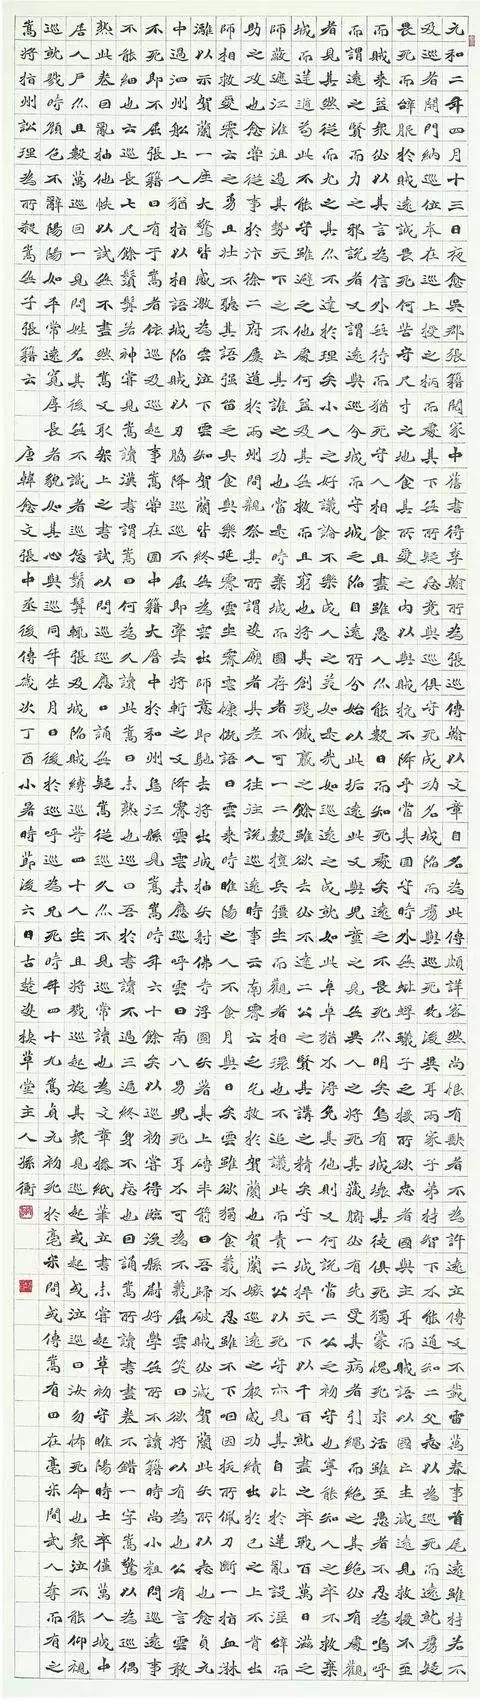 元和二年四月十三日夜愈吳郡張籍閱家中舊書得李翰所為張巡傳翰以文章自名為此傳頗詳密然尚恨有闕者不為許遠立傳又不載雷萬春事首尾遠雖材若不
及巡者開門納巡位本在巡上授之柄而處其下無所疑忌竟與巡俱守死成功名城陷而虜與巡死先後異耳兩家子弟材智下不能通知二父志以為巡死而遠就虜疑
畏死而辭服於賊遠誠畏死何苦守尺寸之地食其所愛之肉以與賊抗而不降乎當其圍守時外無蚍蜉蟻子之援所欲忠者國與主耳而賊語以國亡主滅遠見救援不至
而賊來益眾必以其言為信外無待而猶死守人相食且盡雖愚人亦能數日而知死處矣遠之不畏死亦明矣烏有城壞其徒俱死獨蒙愧恥求活雖至愚者不忍為嗚呼
而謂遠之賢而為之邪說者又謂遠與巡分城而守城之陷自遠所分始以此詬遠此又與兒童之見無異人之將死其藏腑必有先受其病者引繩而絕之其絕必有處觀
者見其然從而尤之其亦不達於理矣小人之好議論不樂成人之美如是哉如巡遠之所成就如此卓卓猶不得免其他則又何說當二公之初守也寧能知人之卒不救棄
城而逆遁苟此不能守雖避之他處何益及其無救而且窮也將其創殘餓羸之餘雖欲去必不達二公之賢其講之精矣守一城捍天下以千百就盡之卒戰百萬日滋之
師蔽遮江淮沮遏其勢天下之不亡其誰之功也當是時棄城而圖存者不可一二數擅彊兵坐而觀者相環也不追議此而責二公以死守亦見其自比於逆亂設淫辭而
助之攻也愈嘗從事於汴徐二府屢道於兩州間親祭其所謂雙廟者其老人往往說巡遠時事云南霽雲之乞救於賀蘭也賀蘭嫉巡遠之聲威功績出己之上不肯出
師相救愛霽雲之勇且壯不聽其語強留之具食與樂延霽雲坐霽雲慷慨語曰雲來時睢陽之人不食月餘日矣雲雖欲獨食義不忍雖食不下咽因拔所佩刀斷一指血淋
灕以示賀蘭一座大驚皆感激為雲泣下雲知賀蘭終無為雲出師意即馳去將出城抽矢射佛寺浮圖矢著其上磚半箭曰吾歸破賊必滅賀蘭此矢所以志也愈貞元
中過泗州船上人猶指以相語城陷賊以刃脅降巡巡不屈即牽去將斬之又降霽雲雲未應巡呼雲曰南八男兒死耳不可為不義屈雲笑曰欲將以有為也公有言雲敢
不死即不屈張籍曰有于嵩者依巡及巡起事嵩嘗在圍中籍大曆中於和州烏江縣見嵩嵩時年六十餘矣以巡初嘗得臨渙縣尉好學無所不讀籍時尚小粗問巡遠事
不能細也云巡長七尺餘鬚髯若神嘗見嵩讀漢書謂嵩曰何為久讀此嵩曰未熟也巡曰吾於書讀不過三遍終身不忘也因誦嵩所讀書盡卷不錯一字嵩驚以為巡偶
熱此卷因亂抽他帙以試無不盡然嵩又取架上之書試以問巡巡應口誦無疑嵩從巡久亦不見巡讀書也為文章操紙筆立書未嘗起草初守睢陽時士卒僅萬人城中
居人戶亦且數萬巡因一見問姓名其後無不識者巡怒鬚髯輒張及城陷賊縛巡等四十人坐且將戮巡起旋其眾見巡起或起或泣巡曰汝勿怖死命也眾泣不能仰視
巡就戮時顏色不亂陽陽如平常遠寬厚長者貌如其心與巡同年生月日後於巡呼巡為兄死時年四十九嵩貞元初死於亳宋間或傳嵩有田在亳宋間武人奪而有之
嵩將指州訟理為所殺嵩無子張籍云 唐韓愈文張中丞後傳歲次丁酉小暑時節後六日古楚草堂主人孫衡